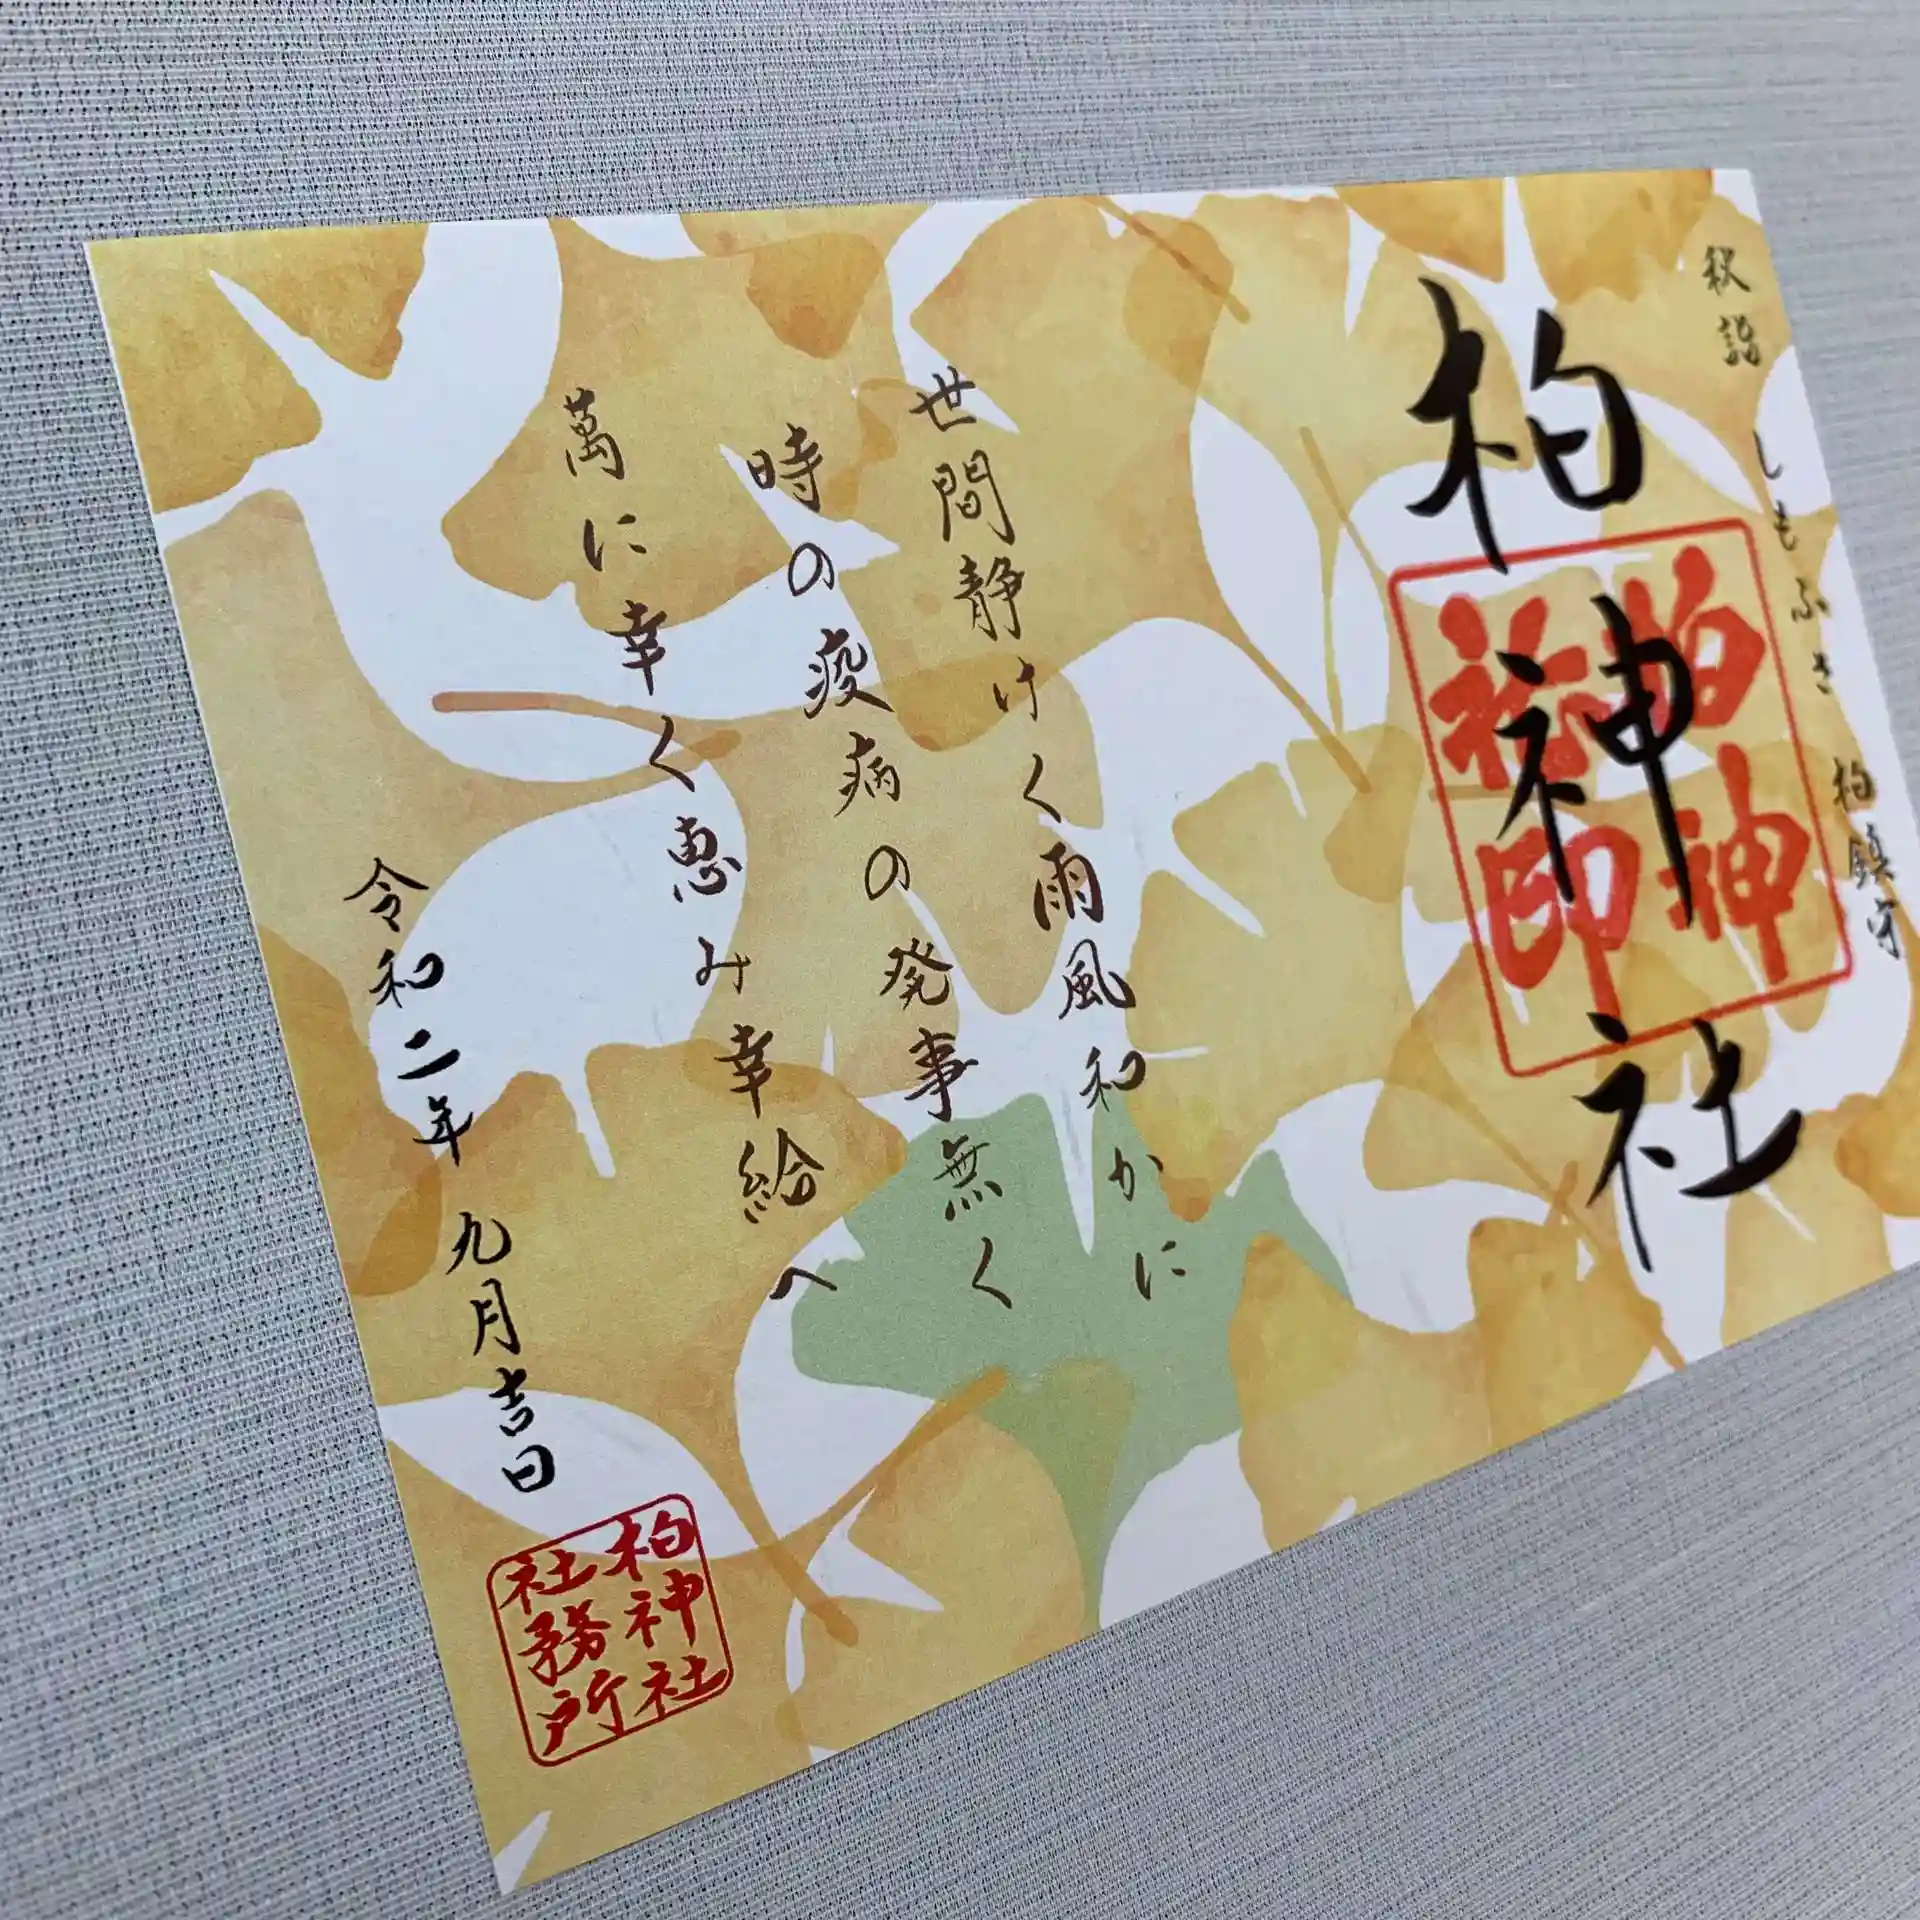 秋詣 しもふさ 柏鎮守
柏神社
柏神
社印
世間静けく雨風和かに
時の疫病の発事無く
萬に幸く恵み幸給へ
令和二年 九月吉日
柏神社
社務所